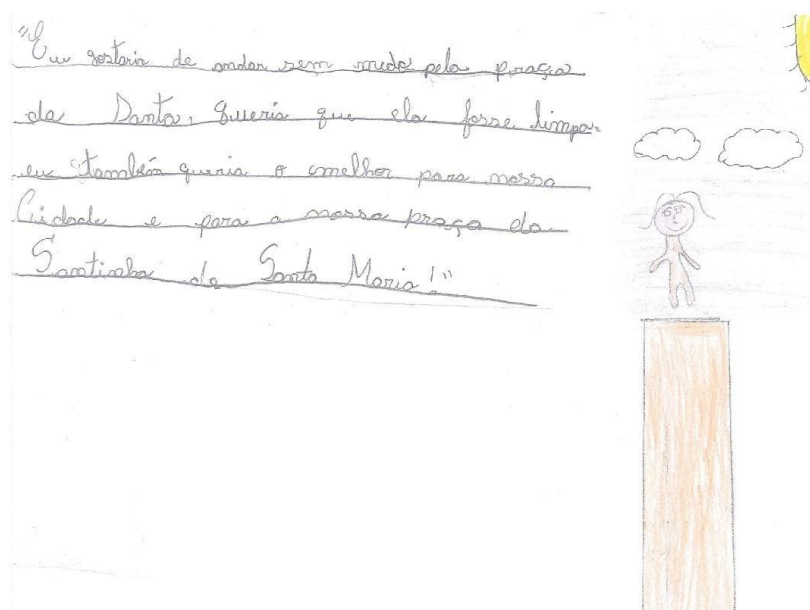 "Eu gostaria de andar sem medo pela praça
da Santa, queria que ela fosse limpa.
eu também queria o melhor para nossa
Cidade e para a nossa praça da
Santinha de Santa Maria!"